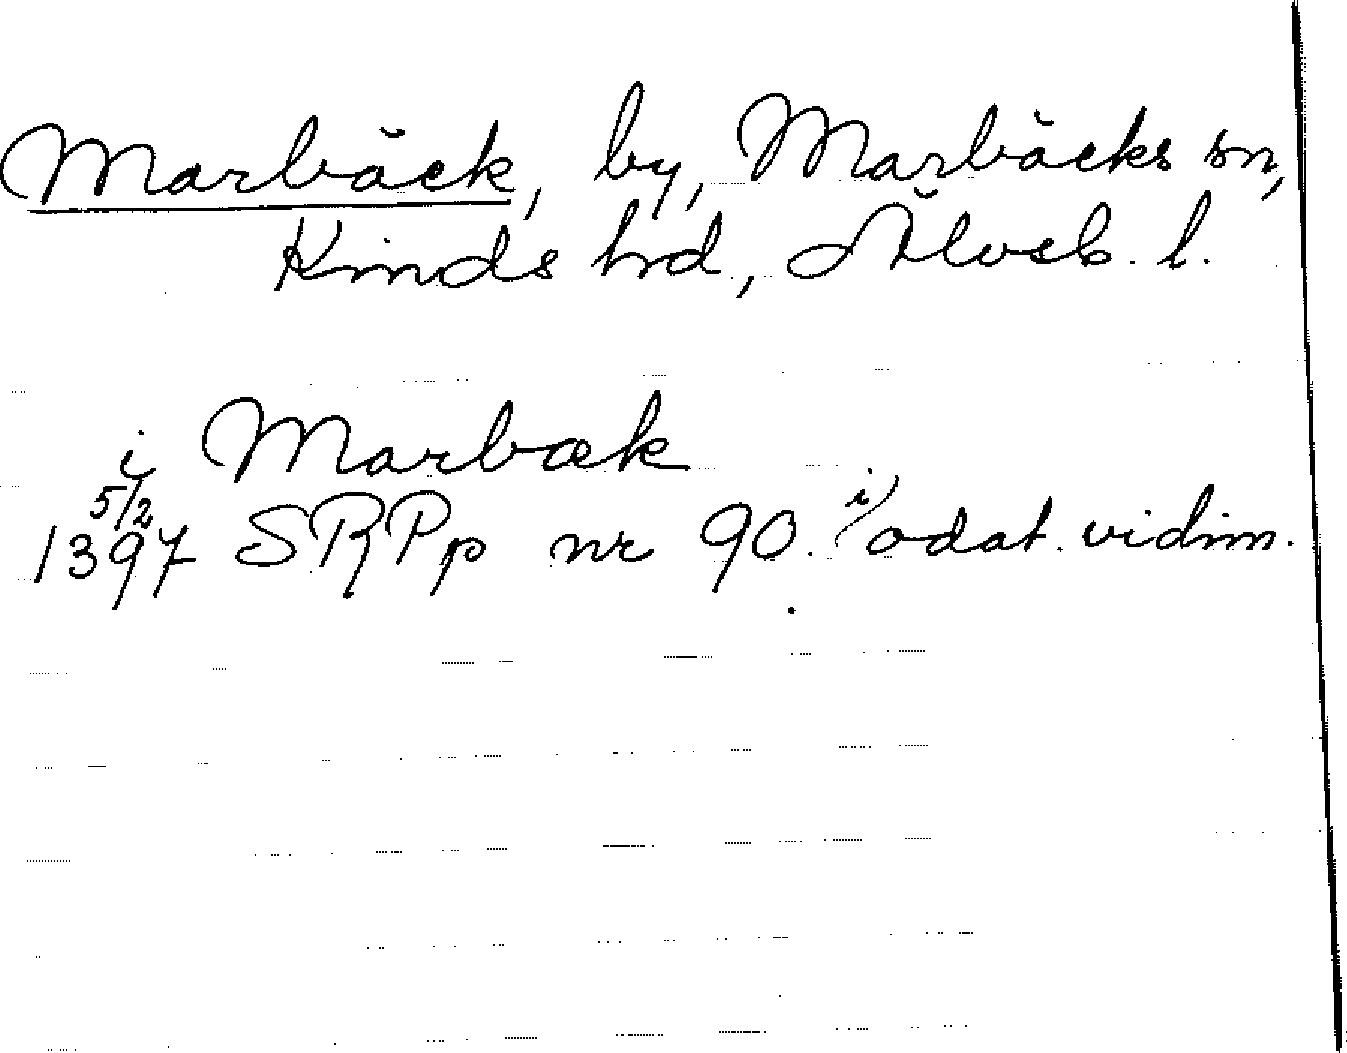 Marbäck, by, Marbäcks sn,
Kinds hd, Älvsb. l.
i Marbæk
5/2
1397 SRPp nr 90. i odat. vidim.